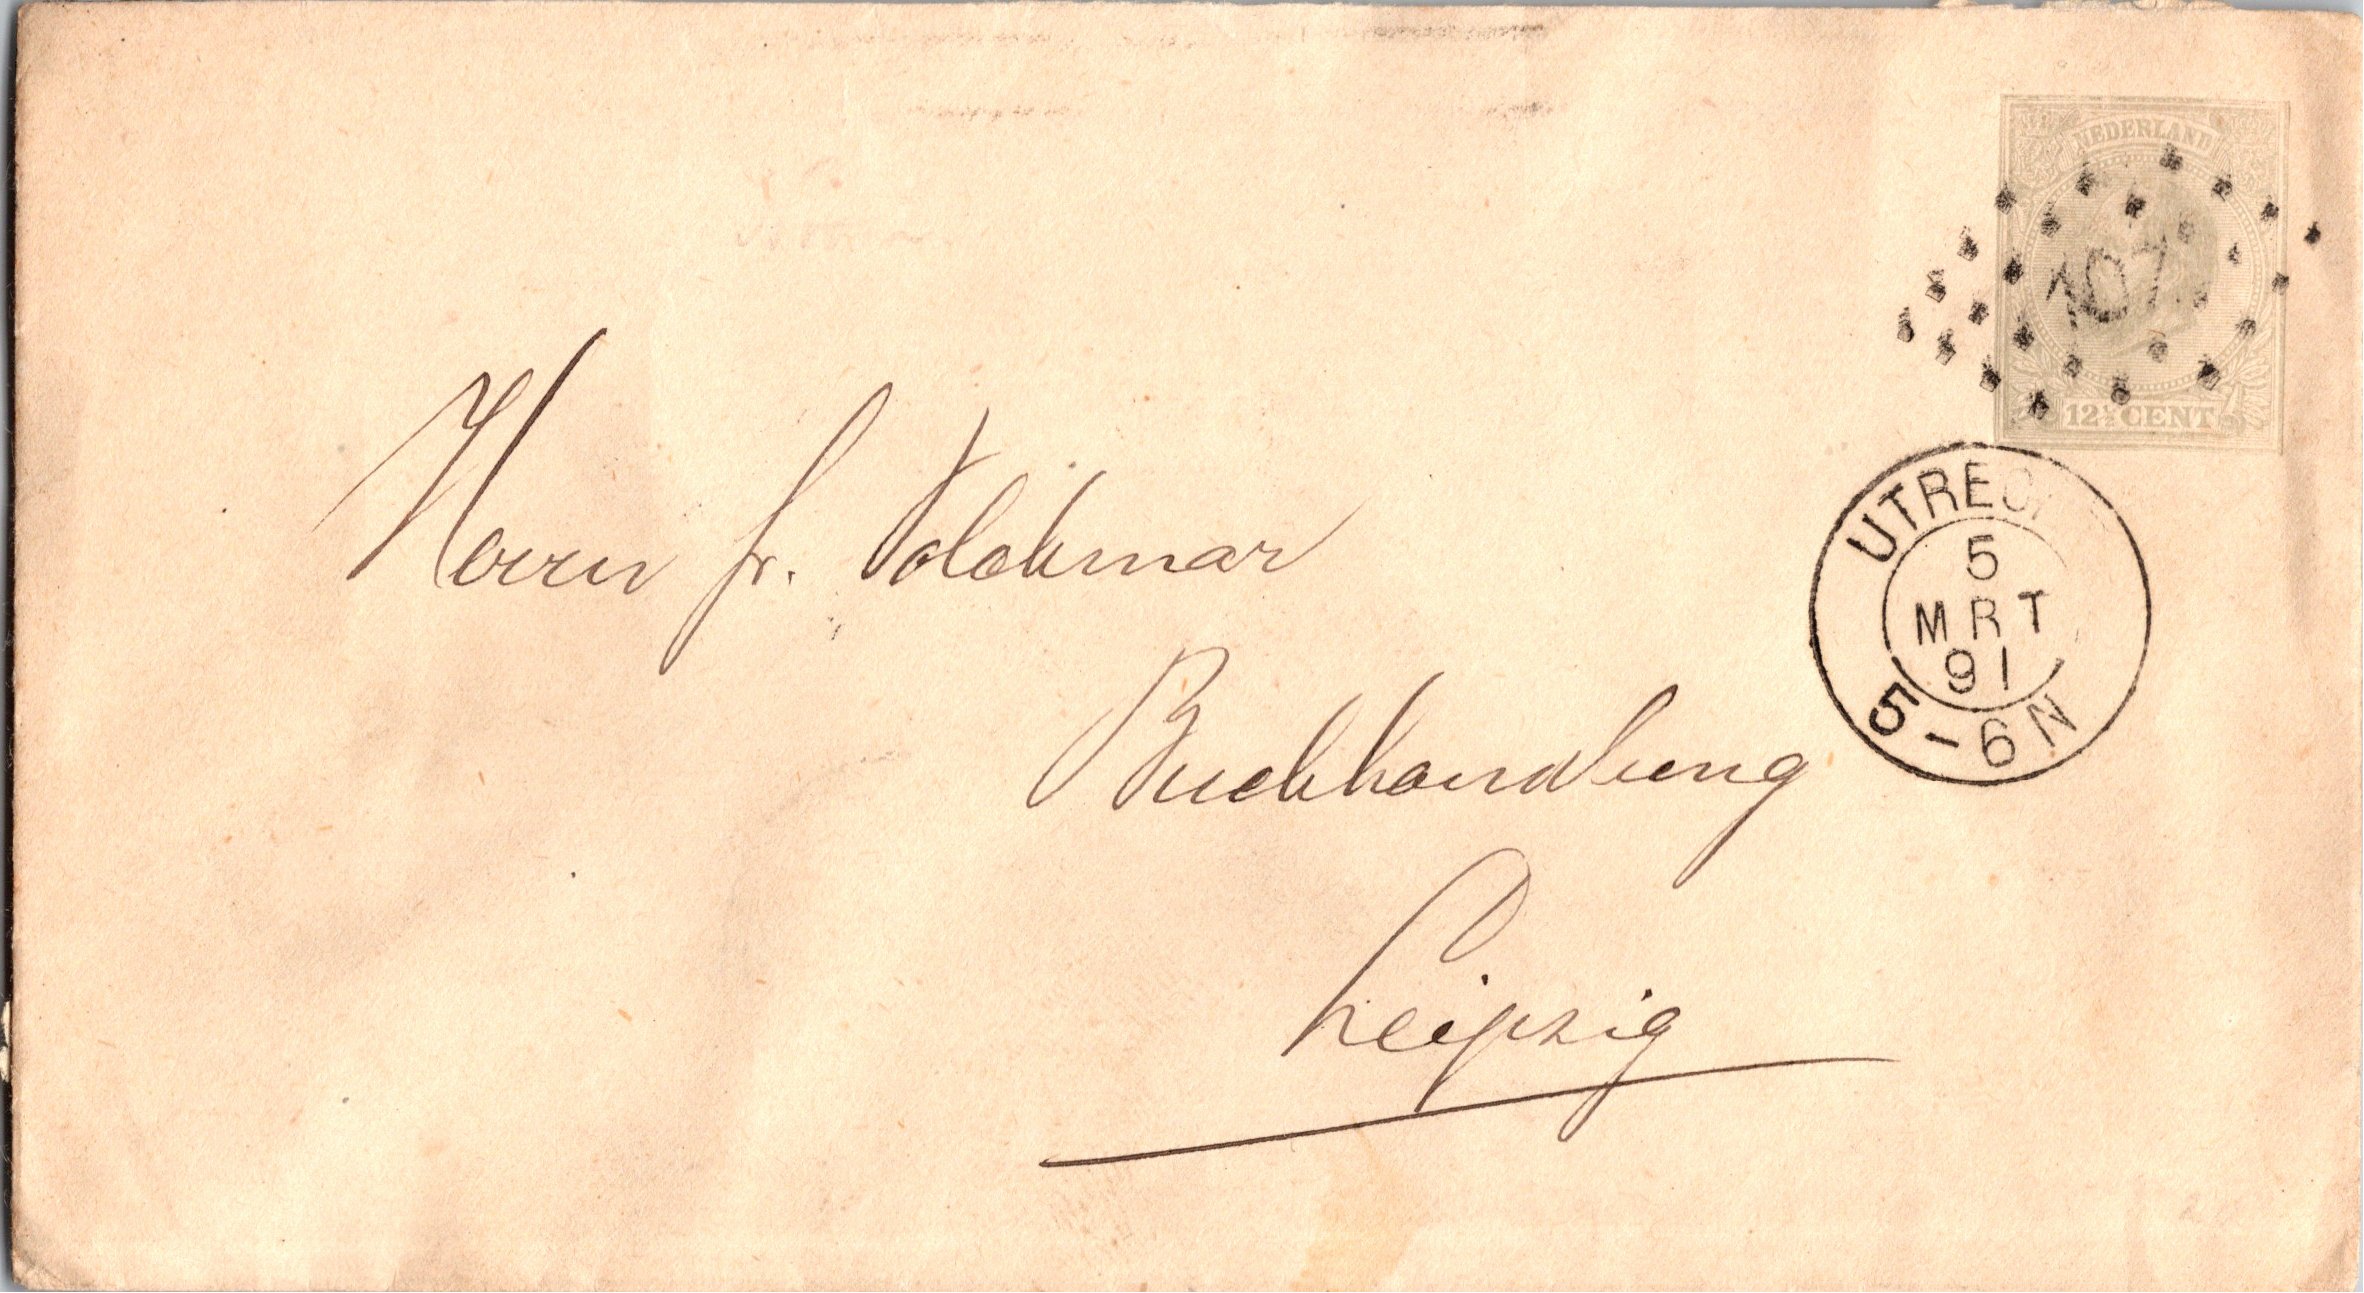 NEDERLAND
107
12½ CENT
UTRECH
5
MRT
91
5-6N
Herrn Fr. Volckmar
Buchhandlung
Leipzig